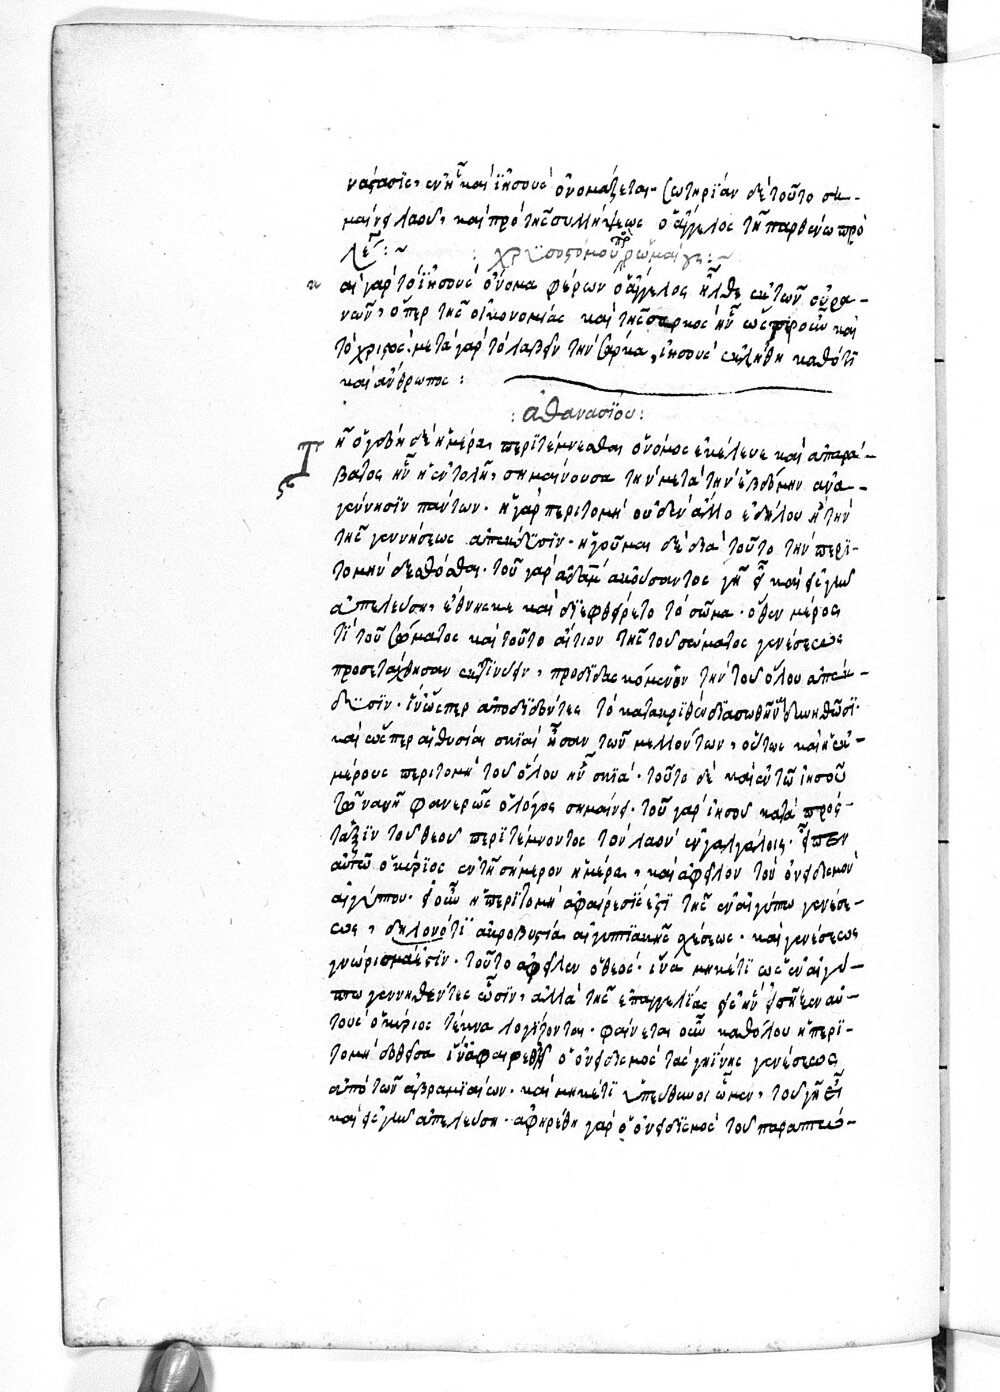 ναστασις, ἐν ᾗ καὶ ἰησοῦς ὀνομάζεται· σωτηρίαν δὲ τοῦτο ση-
μαίνει λαοῦ, καὶ πρὸ τῆς συλλήψεως ὁ ἄγγελος τῇ παρθένω προ
λέγει :~ χρυσοστόμου πρὸς ῥωμαίους :~
κ αὶ γὰρ τὸ ἰησοῦς ὄνομα φέρων ὁ ἄγγελος ἦλθε ἐκ τῶν οὐρα-
νῶν, ὅπερ τῆς οἰκονομίας καὶ τῆς σαρκός ἦν ὥσπερ οὖν καὶ
τὸ χριστός. μετὰ γὰρ τὸ λαβεῖν τὴν σάρκα, ἰησοῦς ἐκλήθη καθότι
καὶ ἄνθρωπος :
: ἀθανασίου :
Τ ῇ ὀγδόῃ δὲ ἡμέρα περιτέμνεσθαι ὁ νόμος ἐκέλευε καὶ ἀπαρά-
βατος ἦν ἡ ἐντολὴ, σημαίνουσα τὴν μετὰ τὴν ἑβδόμην ἀνα-
γέννησιν πάντων. ἡ γὰρ περιτομὴ οὐδὲν ἄλλο ἐδήλου ἢ τὴν
τῆς γεννήσεως ἀπέκδυσιν. ἡγοῦμαι δὲ διὰ τοῦτο τὴν περι-
τομὴν δεδόσθαι. τοῦ γὰρ ἀδαμ ἀκούσαντος γῆ εἶ καὶ εἰς γῆν
ἀπελεύση, ἔθνησκε καὶ διεφθείρετο τὸ σῶμα. ὅθεν μέρος
τι τοῦ σώματος καὶ τοῦτο αἴτιον τῆς τοῦ σώματος γενέσεως
προσετάχθησαν ἐκτίνειν, προδιδασκόμενοι τὴν τοῦ ὅλου ἀπέκ-
δυσιν. ἵν' ὥσπερ ἀποδιδόντες τὸ κατακριθὲν διασωθῆναι δυνηθῶσι.
καὶ ὥσπερ αἱ θυσίαι σκιαὶ ἦσαν τῶν μελλόντων, οὕτως καὶ ἡ ἐκ
μέρους περιτομὴ τοῦ ὅλου ἦν σκιά. τοῦτο δὲ καὶ ἐν τῶ ἰησοῦ
τῶ ναυῆ φανερῶς ὁ λόγος σημαίνει. τοῦ γὰρ ἰησοῦ κατὰ πρόσ-
ταξιν τοῦ θεοῦ περιτέμνοντος τὸν λαὸν ἐν γαλγάλοις. εἶπεν
αὐτῶ ὁ κύριος ἐν τῇ σήμερον ἡμέρα, καὶ ἀφεῖλον τὸν ὀνειδισμὸν
αἰγύπτου. εἰ οὖν ἡ περιτομὴ ἀφαίρεσίς ἐστι τῆς ἐν αἰγύπτω γενέσε-
ως, δηλονότι ἀκροβυστία αἰγυπτιακῆς σχέσεως. καὶ γενέσεως
γνώρισμά ἐστιν. τοῦτο ἀφεῖλεν ὁ θεός. ἵνα μηκέτι ὡς ἐν αἰγύ-
πτω γεννηθέντες ὦσιν, ἀλλὰ τῆς ἐπαγγελίας εἰς ἣν εἰσῆξεν αὐ-
τοὺς ὁ κύριος τέκνα λογίζονται. φαίνεται οὖν καθόλου ἡ περι-
τομὴ δοθεῖσα ἵν' ἀφαιρεθῇ ὁ ὀνειδισμὸς τῆς γηίνης γενέσεως
ἀπὸ τῶν ἀβραμιαίων. καὶ μηκέτι ὑπεύθυνοι ὦμεν, τοῦ γῆ εἶ
καὶ εἰς γῆν ἀπελεύση. ἀφηρέθη γὰρ ὁ ὀνειδισμὸς τοῦ παραπτώ-